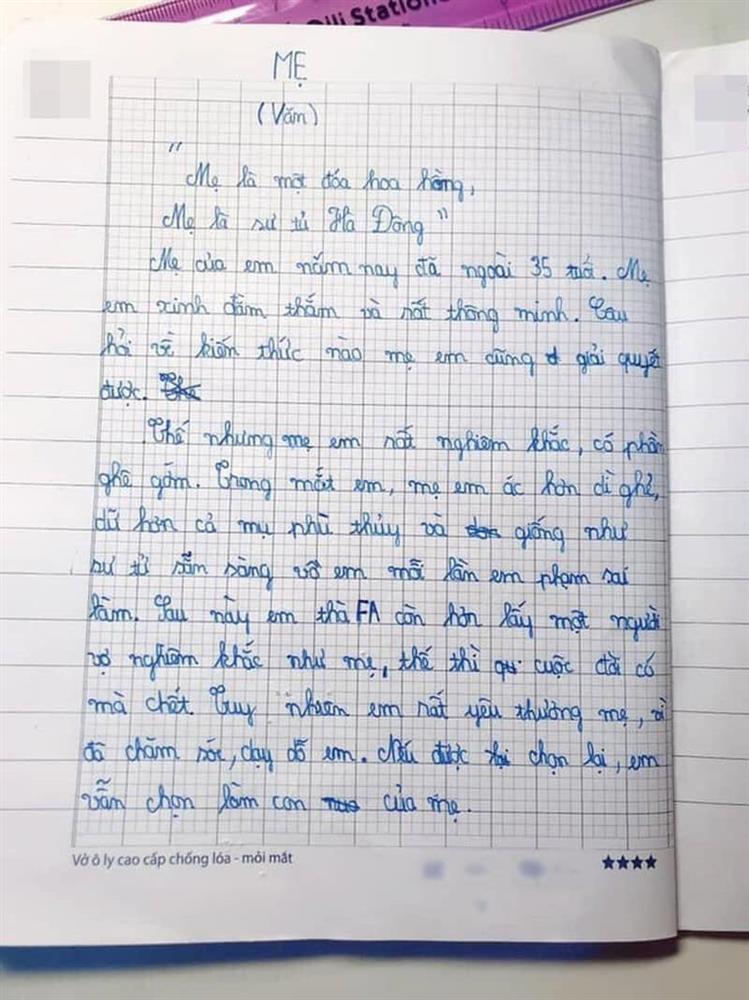 Qili Station
MẸ
(Văn)
"
Mẹ là một đóa hoa hồng,
Mẹ là sư tử Hà Đông"
Mẹ của em năm nay đã ngoài 35 tuổi. Mẹ
em xinh đằm thắm và rất thông minh. Câu
hỏi về kiến thức nào mẹ em cũng giải quyết
được.
Thế nhưng mẹ em rất nghiêm khắc, có phần
ghê gớm. Trong mắt em, mẹ em ác hơn dì ghẻ,
dữ hơn cả mụ phù thủy và giống như
sư tử sẵn sàng vồ em mỗi lần em phạm sai
lầm. Sau này em thà FA còn hơn lấy một người
vợ nghiêm khắc như mẹ, thế thì cuộc đời có
mà chết. Tuy nhiên em rất yêu thương mẹ, vì
đã chăm sóc, dạy dỗ em. Nếu được chọn lại, em
vẫn chọn làm con của mẹ.
Vở ô ly cao cấp chống lóa - mỏi mắt